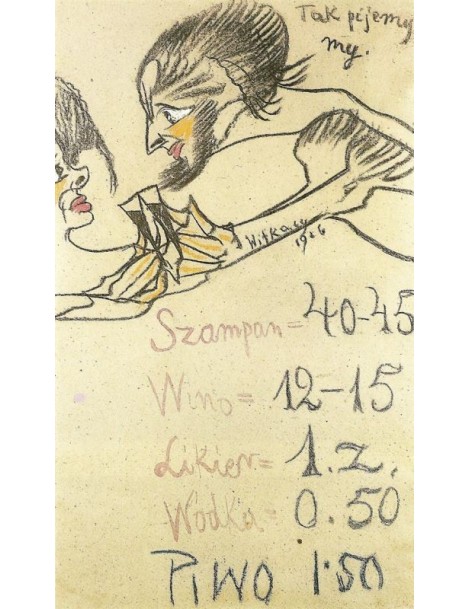 Tak pijemy
my.
Witkacy
1926
Szampan = 40-45
Wino = 12-15
Likier = 1.z.
Wódka = 0.50
PIWO 1.50